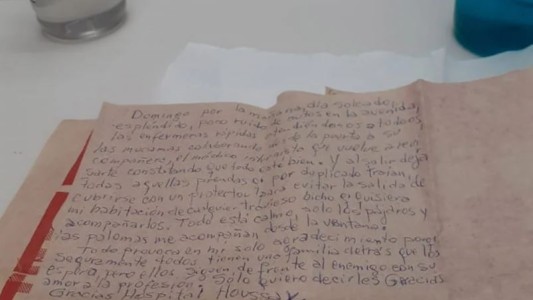 Domingo por la mañana, día soleado,
esplendido, poco ruido de motos en la avenida,
las enfermeras rápidas atendiendonos a todos,
las mucamas colaborando de la puerta a su
compañero, el médico internista que vuelve a ver
constatando que todo esté bien. Y al salir deja
todas aquellas prendas q. por duplicado traían
cubrirse con un protector para evitar la salida de
mi habitación de cualquier travieso bicho q. quisiera
acompañarlos. Todo está calmo, solo los pájaros y
las palomas me acompañan desde la ventana.
Todo provoca en mi solo agradecimiento porque
seguramente todos tienen una familia detrás que los
espera, pero ellos siguen de frente al enemigo con su
amor a la profesión. Solo quiero decirles Gracias
Gracias Hospital Houssay.